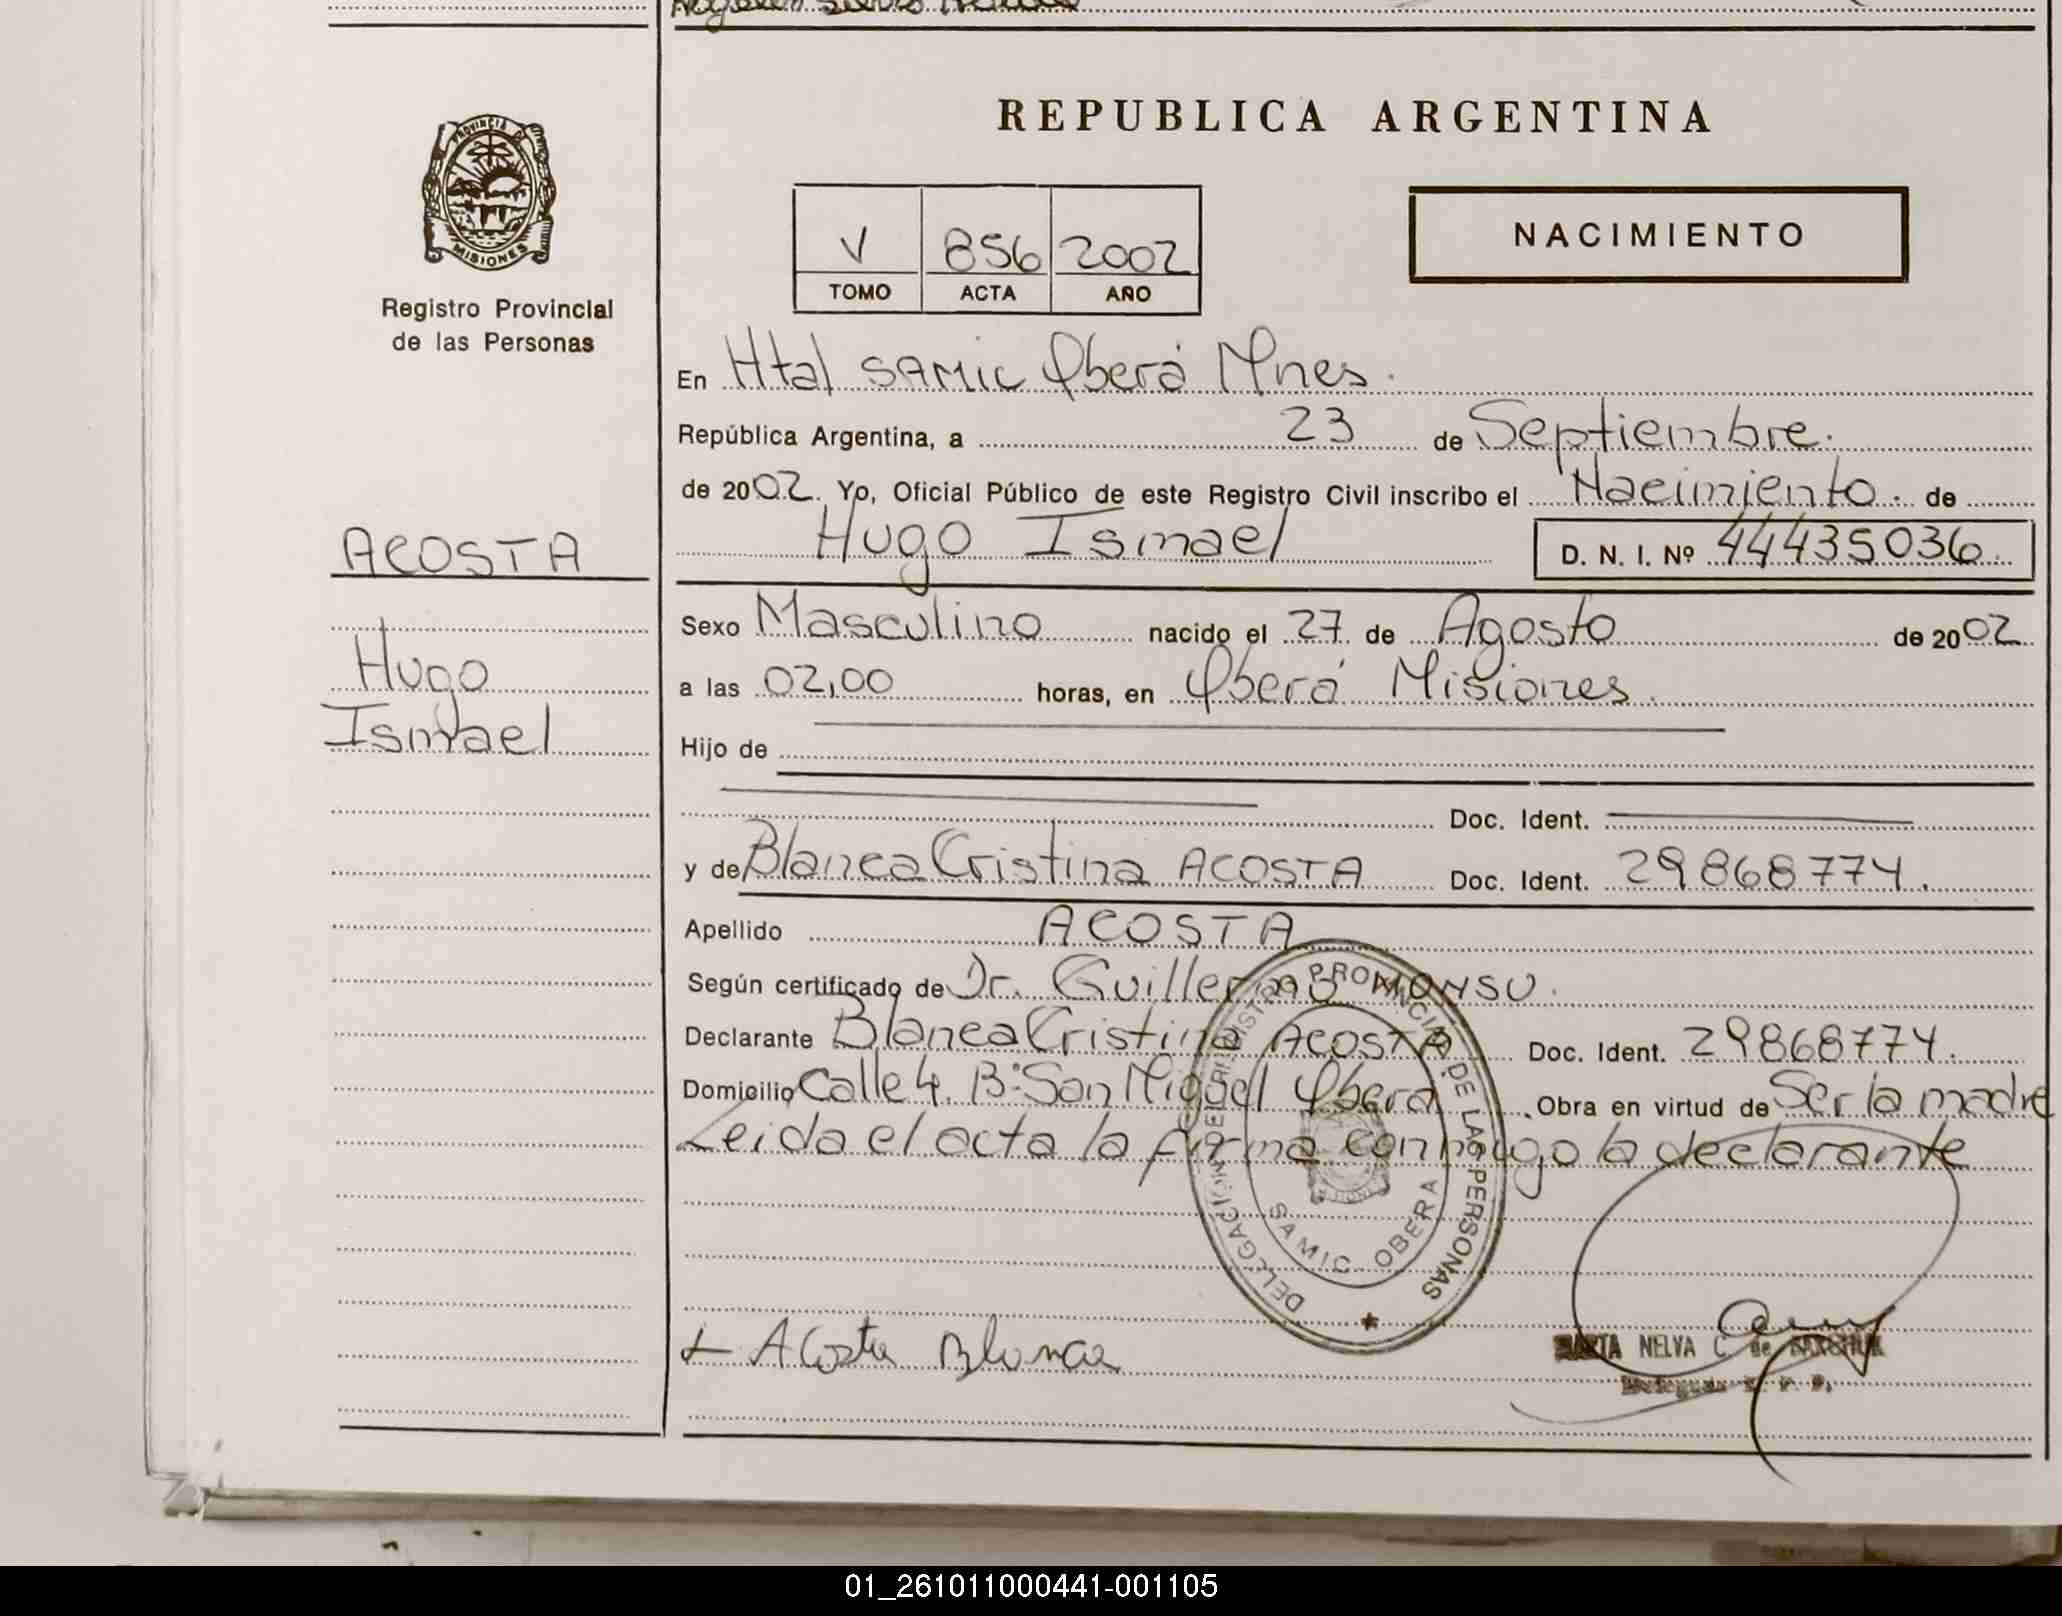 REPUBLICA ARGENTINA
PROVINCIA DE
MISIONES
Registro Provincial
de las Personas
V 856 2002
TOMO ACTA AÑO
NACIMIENTO
En Htal SAMIC Oberá Mnes.
República Argentina, a 23 de Septiembre.
de 2002. Yo, Oficial Público de este Registro Civil inscribo el Nacimiento. de
Hugo Ismael D. N. I. Nº 44435036.
ACOSTA
Hugo
Ismael
Sexo Masculino nacido el 27 de Agosto de 2002
a las 02,00 horas, en Oberá Misiones.
Hijo de
Doc. Ident.
y de Blanca Cristina ACOSTA Doc. Ident. 29868774.
Apellido ACOSTA
Según certificado de Dr. Guillermo MONSU.
Declarante Blanca Cristina ACOSTA Doc. Ident. 29868774.
Domicilio Calle 4. Bº San Miguel Oberá. Obra en virtud de Ser la madre
Leida el acta la firma conmigo la declarante
DELEGACION DEL REGISTRO PROVINCIAL DE LAS PERSONAS
SAMIC OBERA
Acosta Blanca
NELVA C. de
01_261011000441-001105